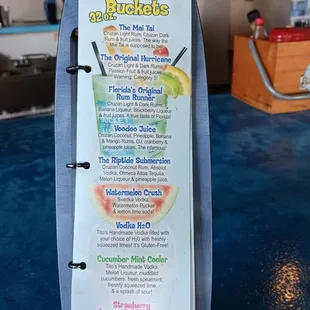 Buckets
32 oz.
The Mai Tai
Cruzan Light Rum, Cruzan Dark
Rum & fruit juices. The way the
Mai Tai is supposed to be!
The Original Hurricane
Cruzan Light & Dark Rums,
Passion Fruit & fruit juices.
Warning: Category 5!
Florida's Original
Rum Runner
Cruzan Light & Dark Rum,
Banana Liqueur, Blackberry Liqueur
& fruit juices. A true taste of Florida!
Voodoo Juice
Cruzan Coconut, Pineapple, Banana
& Mango Rums, OJ, cranberry &
pineapple juices. The infamous!
The Riptide Submersion
Cruzan Coconut Rum, Absolut
Vodka, Olmeca Altos Tequila,
Melon Liqueur & pineapple juice.
Watermelon Crush
Svedka Vodka,
Watermelon Pucker
& lemon lime soda!
Vodka H2O
Tito's Handmade Vodka filled with
your choice of H2O with freshly
squeezed limes! It's Gluten-Free!
Cucumber Mint Cooler
Tito's Handmade Vodka,
Melon Liqueur, muddled
cucumbers, fresh spearmint,
freshly squeezed lime
& a splash of sour!
Strawberry